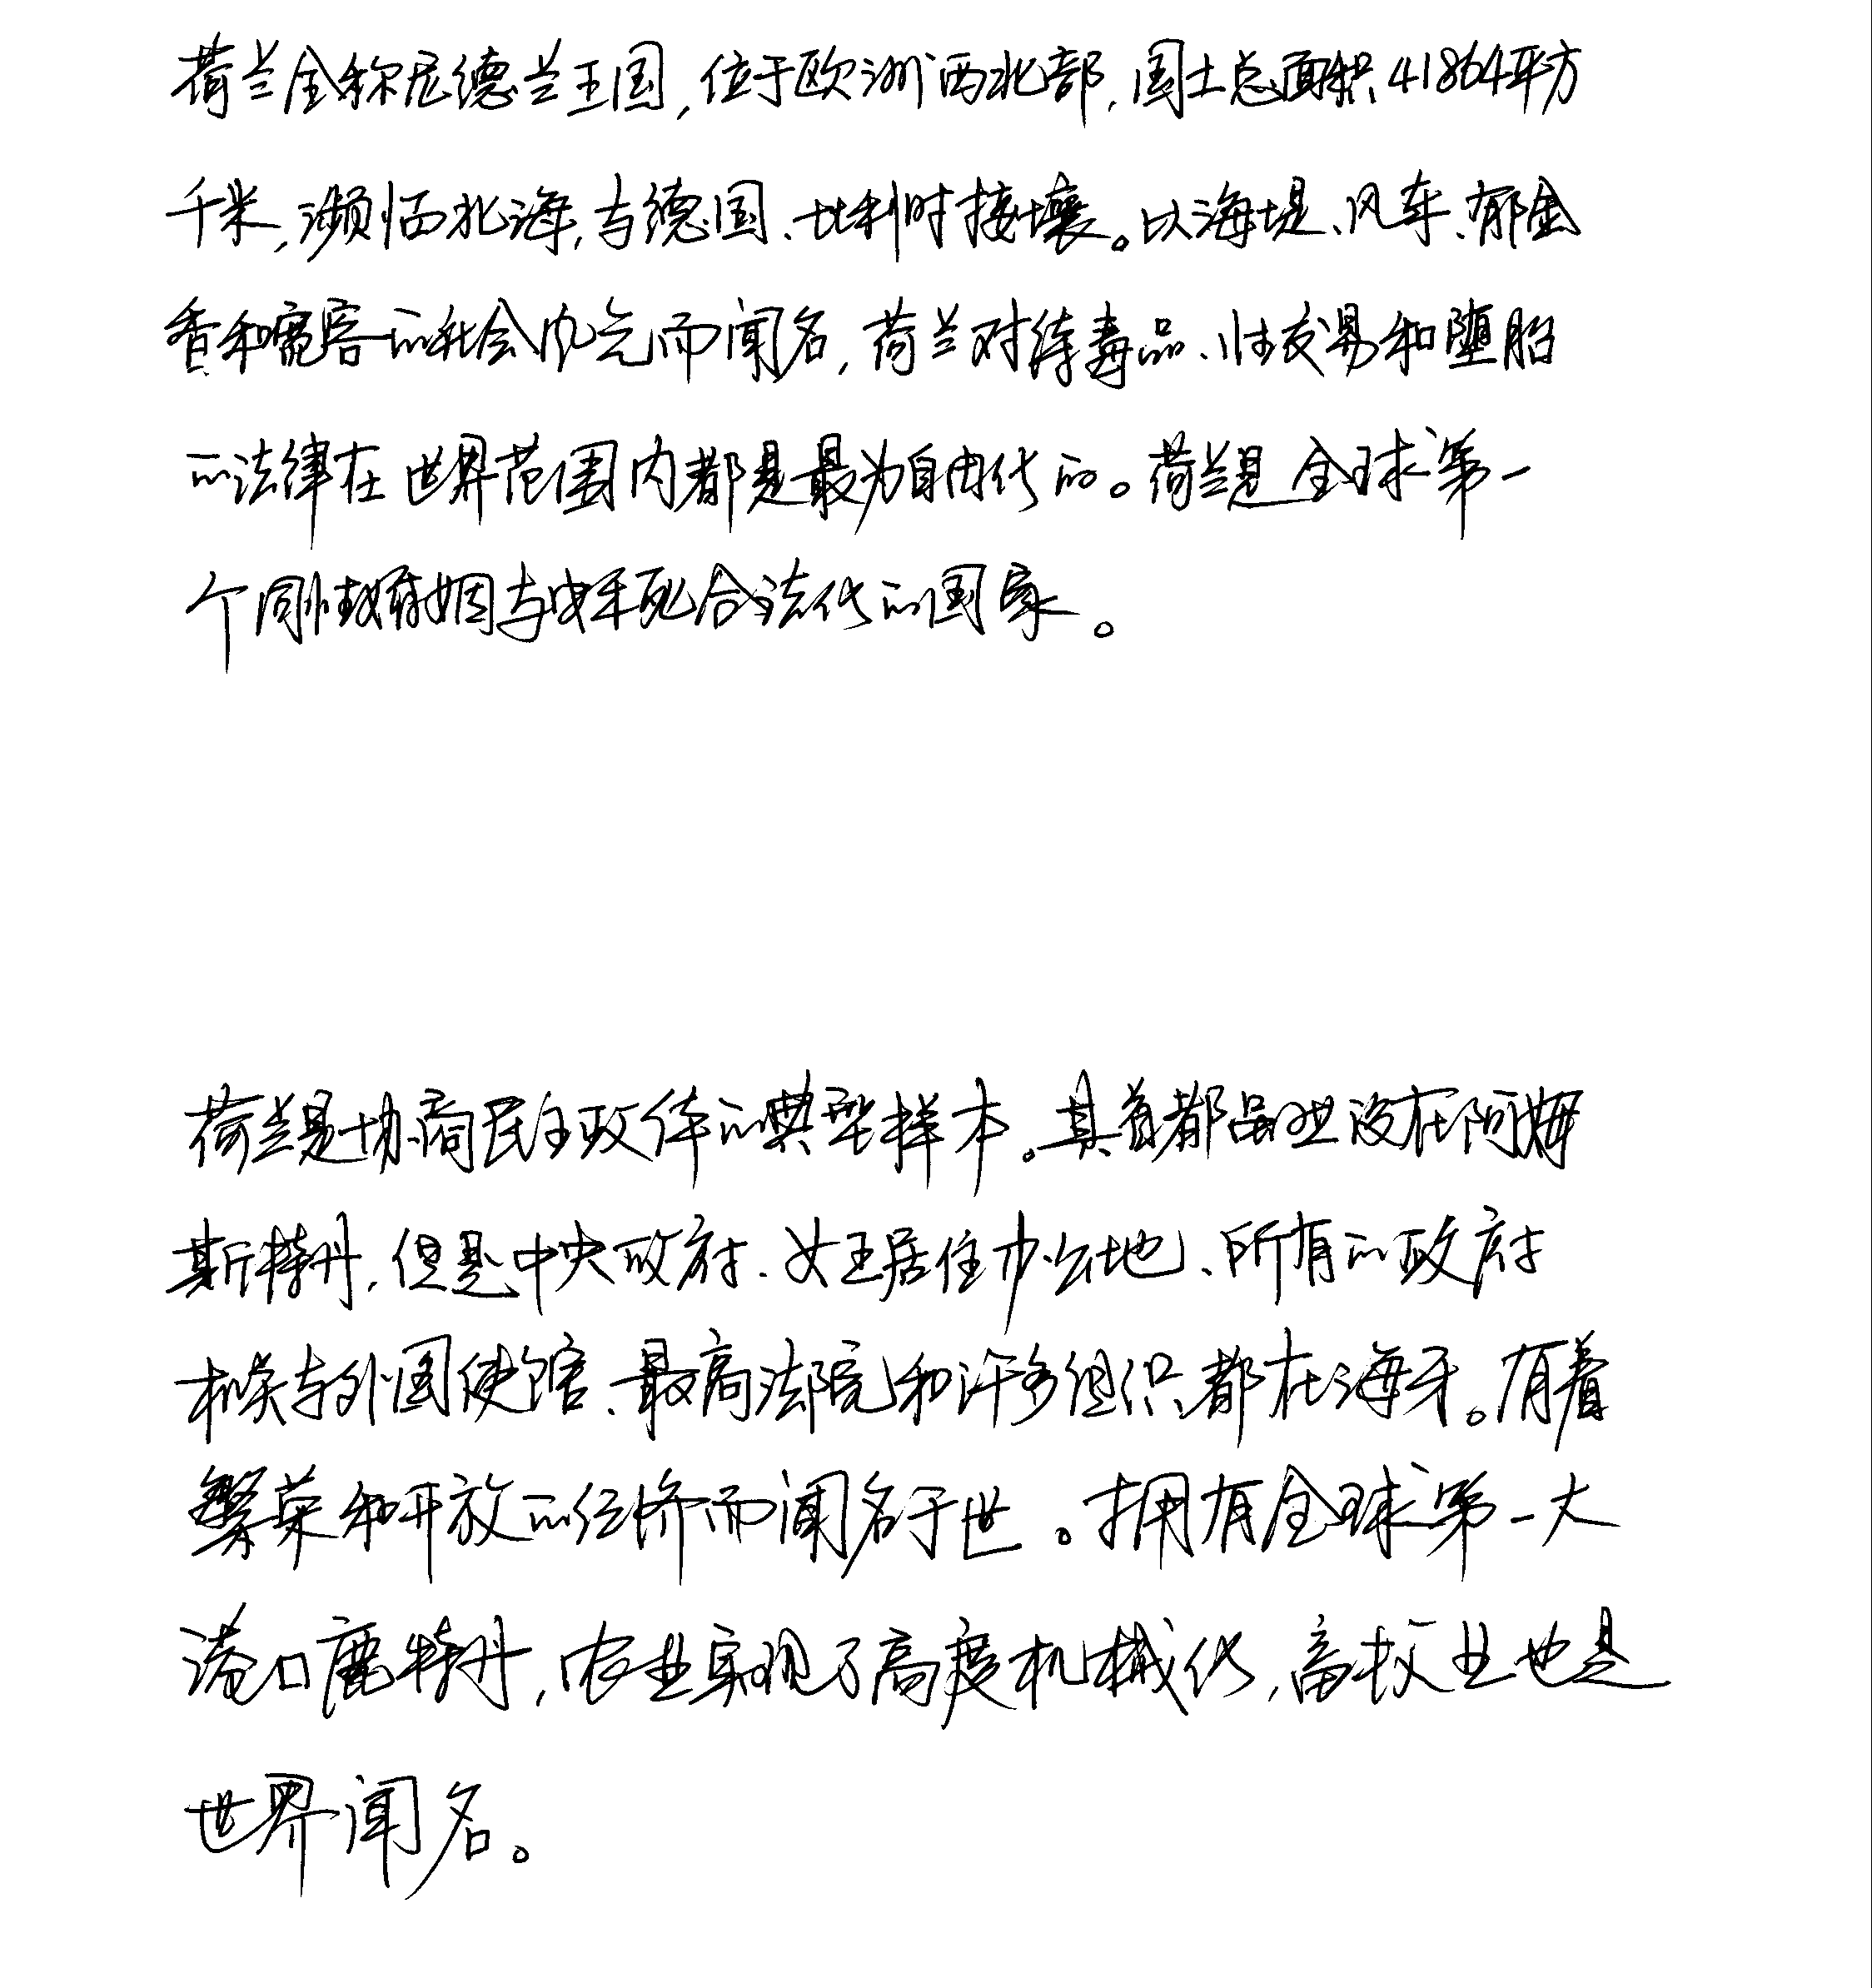 荷兰全称尼德兰王国,位于欧洲西北部,国土总面积41864平方
千米,濒临北海,与德国、比利时接壤。以海堤、风车、郁金
香和宽容的社会风气而闻名,荷兰对待毒品、性交易和堕胎
的法律在世界范围内都是最为自由化的。荷兰是全球第一
个同性婚姻与安乐死合法化的国家。
荷兰是协商民主政体的典型样本。其首都虽然设在阿姆
斯特丹,但是中央政府、女王居住办公地、所有的政府
机关与外国使馆、最高法院和许多组织都在海牙。有着
繁荣和开放的经济而闻名于世。拥有全球第一大
港口鹿特丹,农业实现了高度机械化,畜牧业也是
世界闻名。